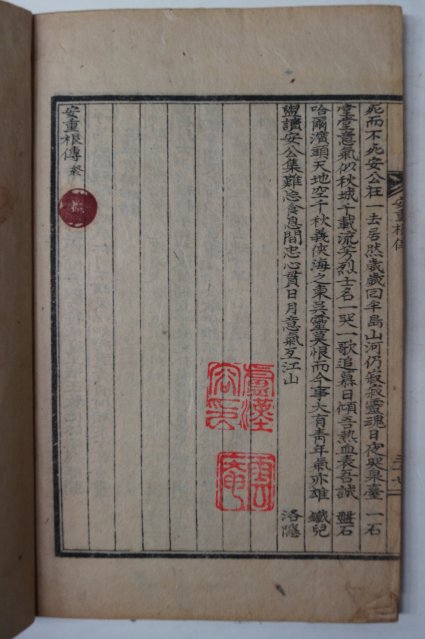 死而不死安公在一去居然歲歲回半島山河仍寂寂靈魂日夜哭泉臺 一石
堂堂意氣似秋城千載流芳烈士名一哭一歌追慕日傾吾熱血表吾誠 盤石
哈爾濱頭天地空千秋義俠海之東英靈莫恨而今事大有青年氣亦雄 鐵兒
盥讀安公集難忘食息間忠心貫日月意氣亙江山 洛隱
安重根傳 終
安重根傳
三十七